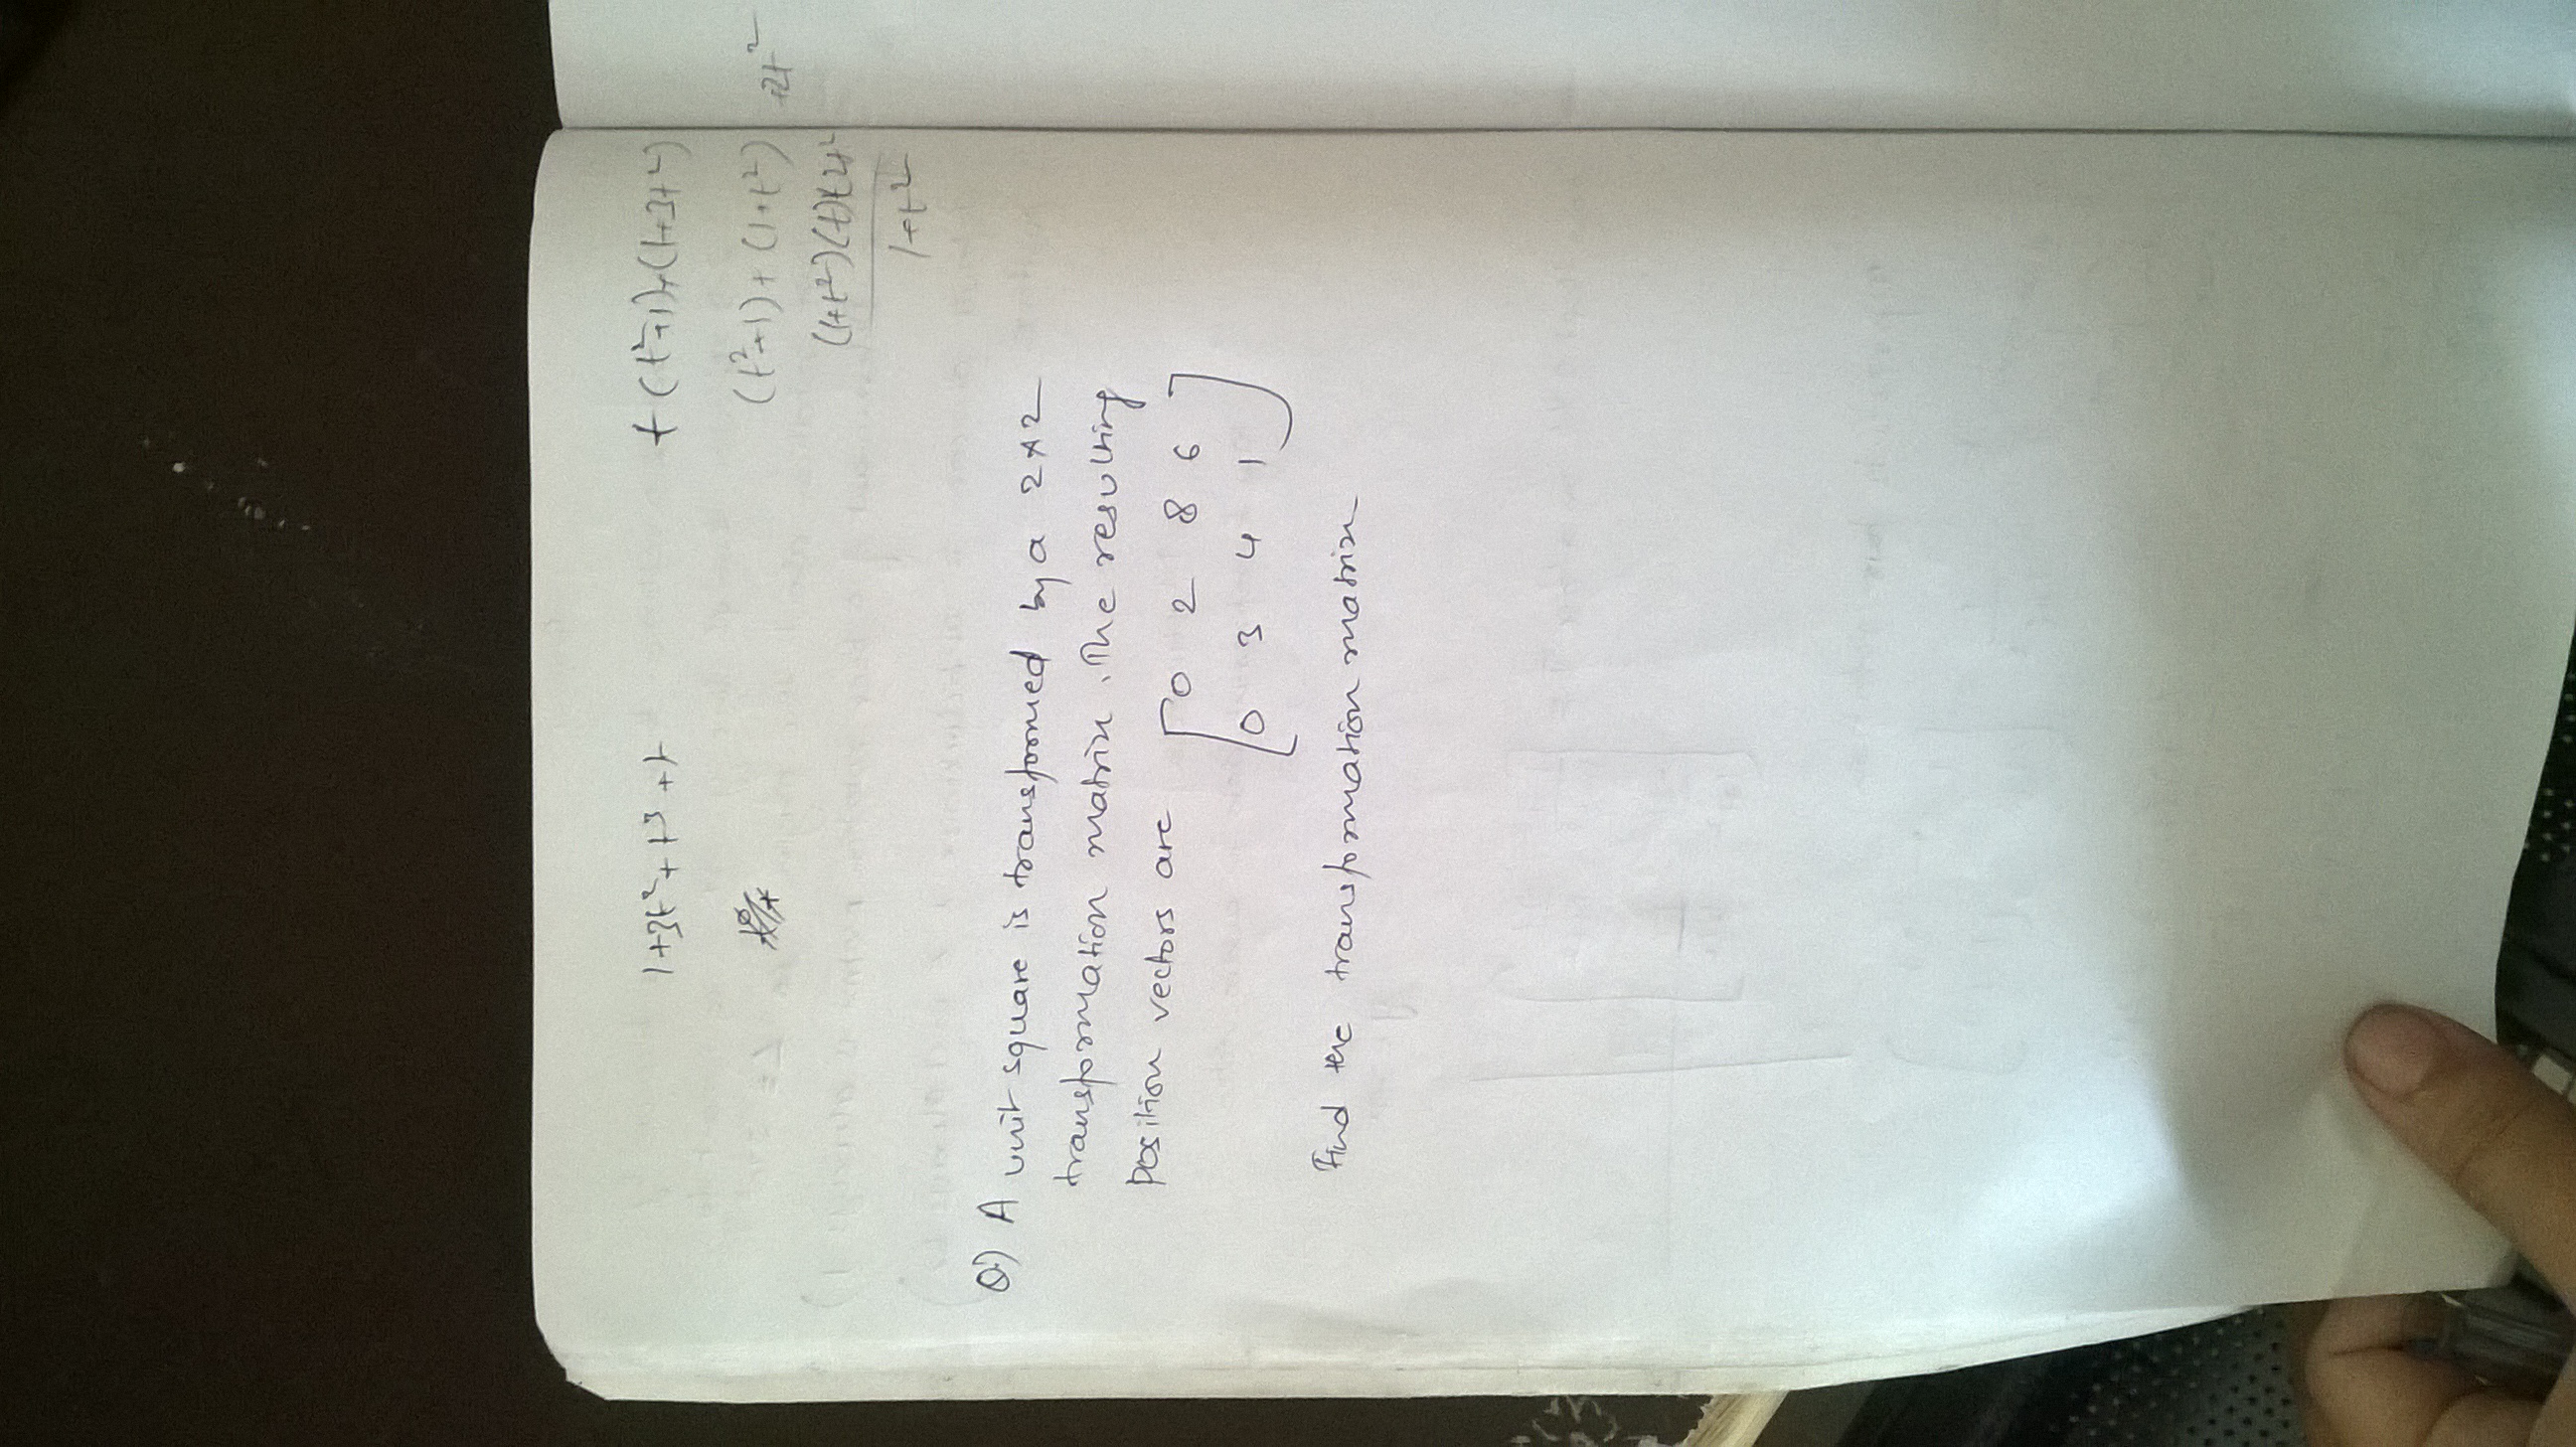 1+3t²+t³+t
t(t²+1)+(1+3t²)
(t²+1)+(1+t²)+2t²
(1+t²)(t)+2t²
1+t²
Q) A unit square is transformed by a 2×2
transformation matrix. The resulting
position vectors are
0 2 8 6
0 3 4 1
Find the transformation matrix